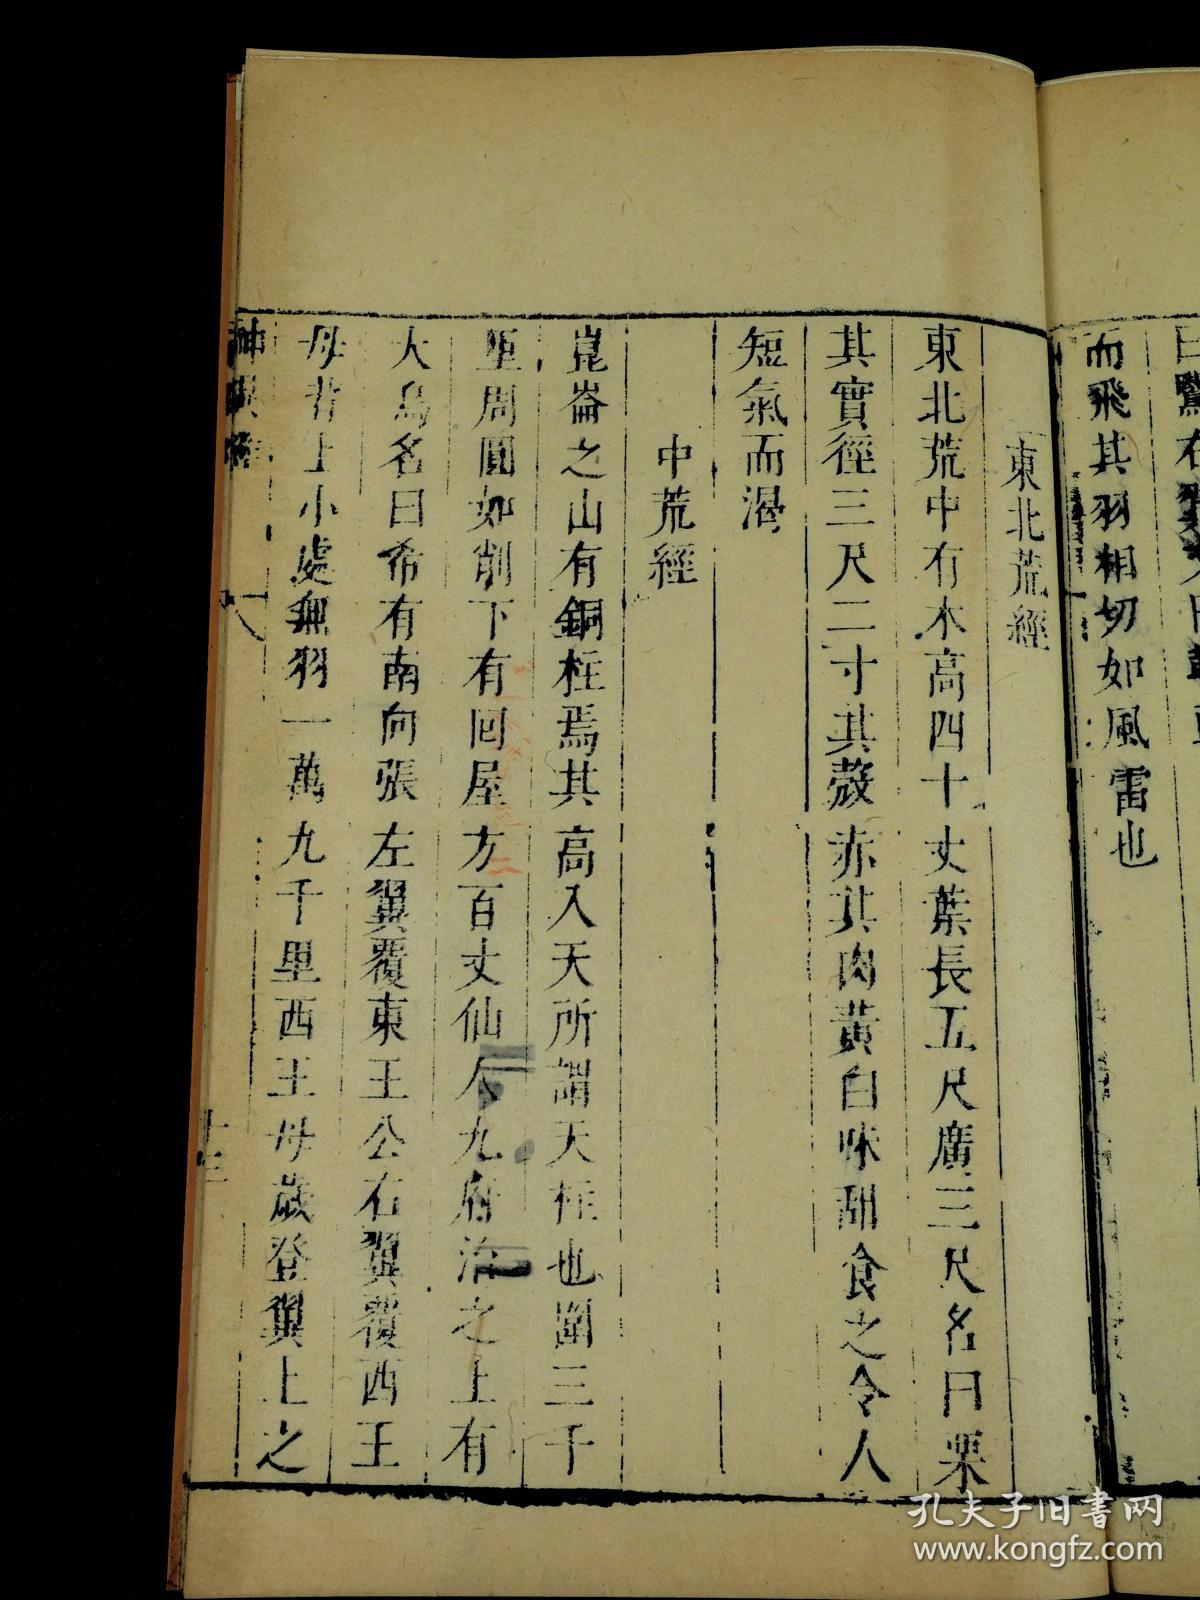 而飛其羽相切如風雷也
東北荒經
東北荒中有木高四十丈葉長五尺廣三尺名曰栗
其實徑三尺二寸其殼赤其肉黃白味甜食之令人
短氣而渴
中荒經
崑崙之山有銅柱焉其高入天所謂天柱也圍三千
里周圓如削下有回屋方百丈仙人九府治之上有
大鳥名曰希有南向張左翼覆東王公右翼覆西王
母背上小處無羽一萬九千里西王母歲登翼上之
神異經
十三
孔夫子旧书网
www.kongfz.com